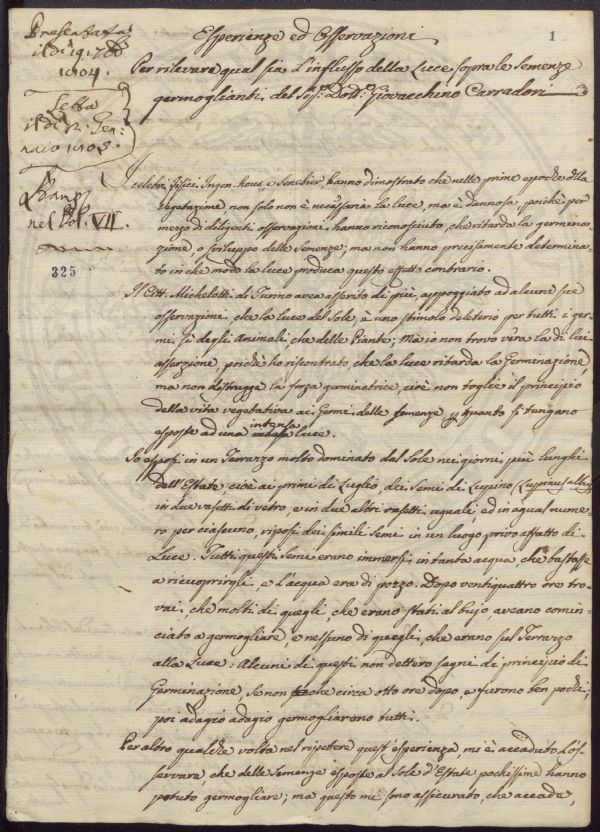 1
Presentata
il dì 19. Xbre
1804.
Letta
il dì 12. Gen:
naio 1805.
nel Vol. VII.
325
Esperienze ed Osservazioni
Per rilevare qual sia l'influsso della Luce sopra le Semenze
germoglianti del Sig.r Dott.r Giovacchino Carradori
I celebri Fisici Ingen-hous, e Senebier hanno dimostrato che nelle prime epoche della
vegetazione non solo non è necessaria la luce, ma è dannosa, poichè per
mezzo di diligenti osservazioni hanno riconosciuto, che ritarda la germina-
zione, o sviluppo delle Semenze; ma non hanno precisamente determina-
to in che modo la luce produca questo effetto contrario.
Il Citt. Michelotti di Turino avea asserito di più, appoggiato ad alcune sue
osservazioni, che la luce del Sole è uno stimolo deleterio per tutti i ger-
mi, sì degli Animali che delle Piante; Ma io non trovo vera la di lui
asserzione, poichè ho riscontrato, che la luce ritarda la Germinazione,
ma non distrugge la forza germinatrice, cioè non toglie il principio
della vita vegetativa ai Germi delle semenze, quanto si tengano
esposte ad una intensa luce.
Io esposi in un Terrazzo molto dominato dal Sole nei giorni più lunghi
dell'Estate, cioè ai primi di Luglio, dei Semi di Luppino (Luppinus albus)
in due vasetti di vetro, e in due altri vasetti uguali, ed in egual nume-
ro per ciascuno, riposi dei simili Semi in un luogo privo affatto di
Luce. Tutti questi Semi erano immersi in tanta acqua che bastasse
a ricuoprirgli, e l'acqua era di pozzo. Dopo ventiquattro ore tro-
vai, che molti di quegli, che erano stati al bujo, aveano comin-
ciato a germogliare, e nessuno di quegli, che erano sul Terrazzo
alla Luce: Alcuni di questi non dettero segni di principio di
Germinazione, se non che circa otto ore dopo, e furono ben pochi;
poi adagio adagio germogliarono tutti.
Per altro qualche volta nel ripetere quest'esperienza, mi è accaduto l'os-
servare, che delle Semenze esposte al Sole d'Estate pochissime hanno
potuto germogliare; ma questo mi sono assicurato, che accade,